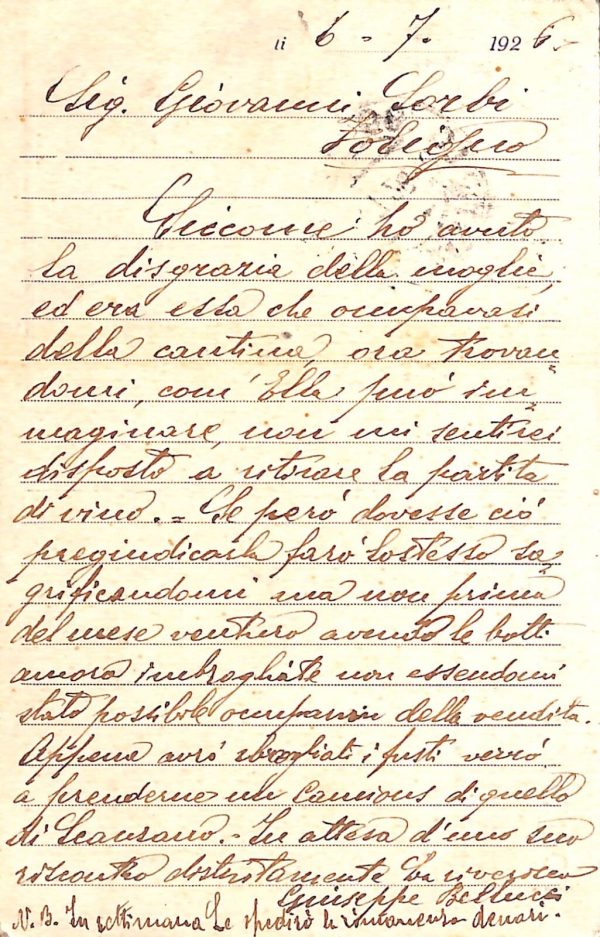 li 6 - 7 - 1926.
Sig. Giovanni Sorbi
Siccome ho avuto
la disgrazia della moglie,
ed era essa che occupavasi
della cantina, ora trovan=
domi, com'Ella può im=
maginare, non mi sentirei
disposto a ritirare la partita
di vino. = Se però dovesse ciò
pregiudicarla farò lostesso sa=
grificandomi ma non prima
del mese venturo avendo le botti
ancora imbrogliate non essendomi
stato possibile occuparmi della vendita.
Appena avrò sbrogliati i fusti verrò
a prenderne un camions di quello
di Scansano. - In attesa d'uno suo
riscontro distintamente La riverisco
Giuseppe Bellucci
N.B. In settimana Le spedirò la rimanenza denari.